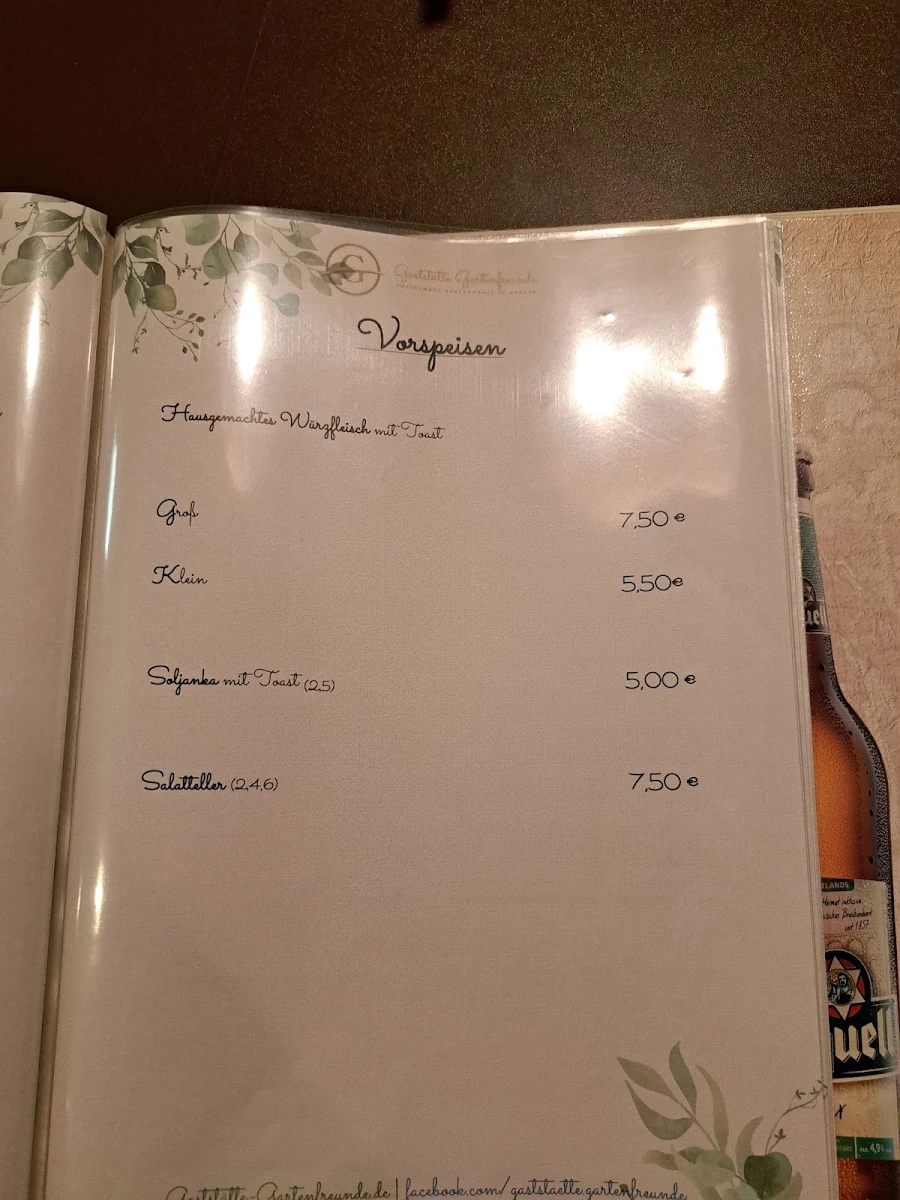 G
Gaststätte Gartenfreunde
Vorspeisen
Hausgemachtes Würzfleisch mit Toast
Groß 7,50 €
Klein 5,50€
Soljanka mit Toast (2,5) 5,00 €
Salatteller (2,4,6) 7,50 €
Gaststätte-Gartenfreunde.de | facebook.com/gaststaette.gartenfreunde
TLANDS
Heimat inklusive
seit 1857
uell
ALK. 4,9%